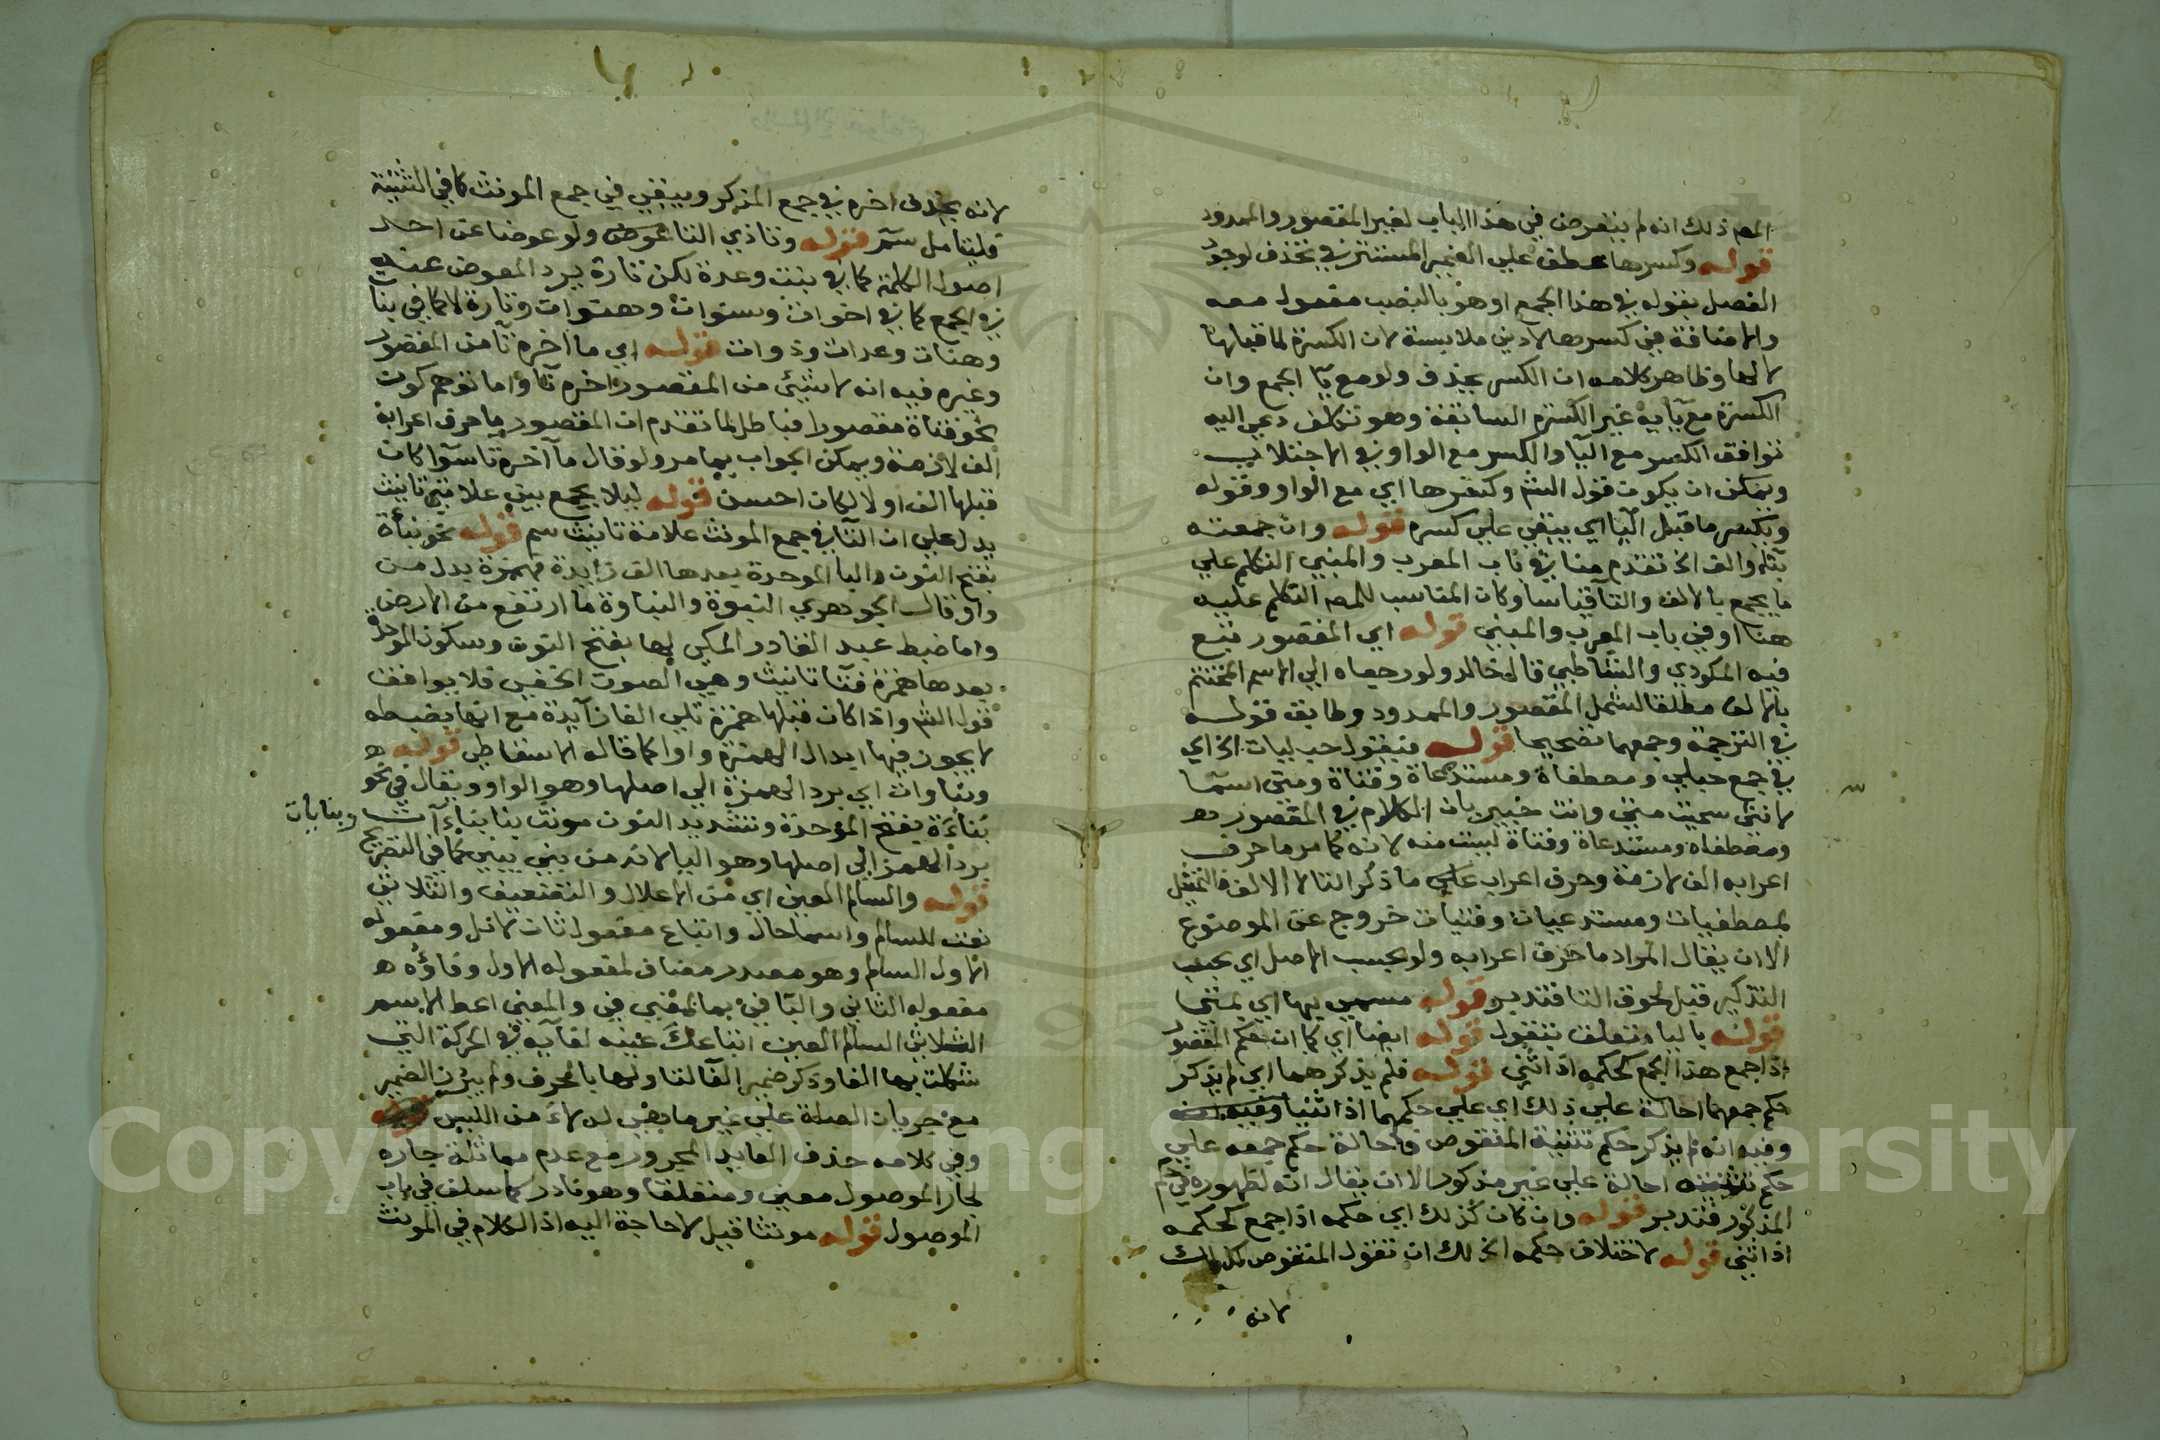 المص ذلك انه لم يتعرض في هذا الباب لغير المقصور والممدود
قوله وكسرها عطف علي الضمير المستتر في تحذف لوجود
الفصل بقوله في هذا الجمع او هو بالنصب مفعول معه
والاضافة في كسرها لادني ملابسة لان الكسرة لما قبلها
لالها وظاهر كلامه ان الكسر يحذف ولو مع يآ الجمع وان
الكسرة مع يآيه غير الكسرة السابقة وهو تكلف دعي اليه
توافق الكسر مع اليآ والكسر مع الواو في الاجتلاب
ويمكن ان يكون قول الشم وكسرها اي مع الواو وقوله
ويكسر ما قبل اليا اي يبقي علي كسره قوله وان جمعته
بتاء والف الخ تقدم منا في باب المعرب والمبني التكلم علي
ما يجمع بالالف والتآ قياسا وكان المناسب للمص التكلم عليه
هنا او في باب المعرب والمبني قوله اي المقصور تبع
فيه المكودي والشاطبي قال خالد ولو رجعاه الي الاسم المختتم
بالالف مطلقا لشمل المقصور والممدود وطابق قوله
في الترجمة وجمعهما تصحيحا قوله فتقول حبليات الخ اي
في جمع حبلي ومصطفاة ومستدعاة وفتاة ومتي اسما
لانثي سميت متي وانت خبير بان الكلام في المقصور
ومصطفاة ومستدعاة وفتاة ليست منه لانه كما مر ما حرف
اعرابه الف لازمة وحرف اعراب علي ما ذكر التا لا الالف فالتمثيل
بمصطفيات ومستدعيات وفتيات خروج عن الموضوع
الا ان يقال المراد ما حرف اعرابه ولو بحسب الاصل اي بحسب
التذكير قبل لحوق التا فتدبر قوله مسمي بها اي بمتي
قوله باليا متعلق بتقول قوله ايضا اي كما ان حكم المقصور
اذا جمع هذا الجمع كحكمه اذا ثني قوله فلم يذكرهما اي لم يذكر
حكم جمعهما احالة علي ذلك اي علي حكمهما اذا اثنيا
وفيه انه لم يذكر حكم تثنية المنقوص فاحالة حكم جمعه علي
حكم تثنيته احالة علي غير مذكور الا ان يقال انه لظهوره في حكم
المذكور فتدبر قوله وان كان كذلك اي حكمه اذا جمع كحكمه
اذا ثني قوله لاختلاف حكمه الخ لك ان تقول المنقوص كذلك
لانه
لانه يحذف اخره في جمع المذكر ويبقي في جمع المونث كما في التثنية
فليتامل سم قوله وتا ذي التا عوض ولو عوضا عن احد
اصول الكلمة كما في بنت وعدة لكن تارة يرد المعوض عنه
في الجمع كما في اخوات وسنوات وهنوات وتارة لا كما في بنات
وهنات وعدات وذوات قوله اي ما اخره تآ من المقصور
وغيره فيه انه لا شيئ من المقصور اخره تآ واما توهم كون
نحو فتاة مقصورا فباطل لما تقدم ان المقصور ما حرف اعرابه
الف لازمة ويمكن الجواب بما مر ولو قال مآ اخره تآ سوآ كان
قبلها الف او لا لكان احسن قوله ليلا يجمع بين علامتي تانيث
يدل علي ان التآ في جمع المونث علامة تانيث سم قوله نحو نباءة
بفتح النون واليا الموحدة بعدها الف زايدة فهمزة بدل من
واو قال الجوهري النبوة والنباوة ما ارتفع من الارض
واما ضبط عبد القادر المكي لها بفتح النون وسكون الموحدة
بعدها همزة فتآ تانيث وهي الصوت الخفي فلا يوافق
قول الشم واذا كان قبلها همزة تلي الفا زآيدة مع انها بضبطه
لا يجوز فيها ابدال الهمزة واوا كما قاله الاسقاطي قوله
ونباوات اي برد الهمزة الي اصلها وهو الواو ويقال في نحو
بناءة بفتح الموحدة وتشديد النون مونث بنا بناءآت وبنايات
برد الهمز الي اصلها وهو اليا لانه من بني يبني كما في التصريح
قوله والسالم العين اي من الاعلال والتضعيف والثلاثي
نعت للسالم واسما حال واتباع مفعول ثان لانل ومفعوله
الاول السالم وهو مصدر مضاف لمفعوله الاول وفاؤه
مفعوله الثاني والبآ في بما بمعني في والمعني اعط الاسم
الثلاثي السالم العين اتباعك عينه لفآيه في الحركة التي
شكلت بها الفا وذكر ضمير الفآ لتاويلها بالحرف ولم يبرز الضمير
مع جريان الصلة علي غير ما هي له لامن اللبس
وفي كلامه حذف العايد المجرور مع عدم مماثلة جاره
لجار الموصول معني ومتعلقا وهو نادر كما سلف في باب
الموصول قوله مونثا قيل لا حاجة اليه اذ الكلام في المونث